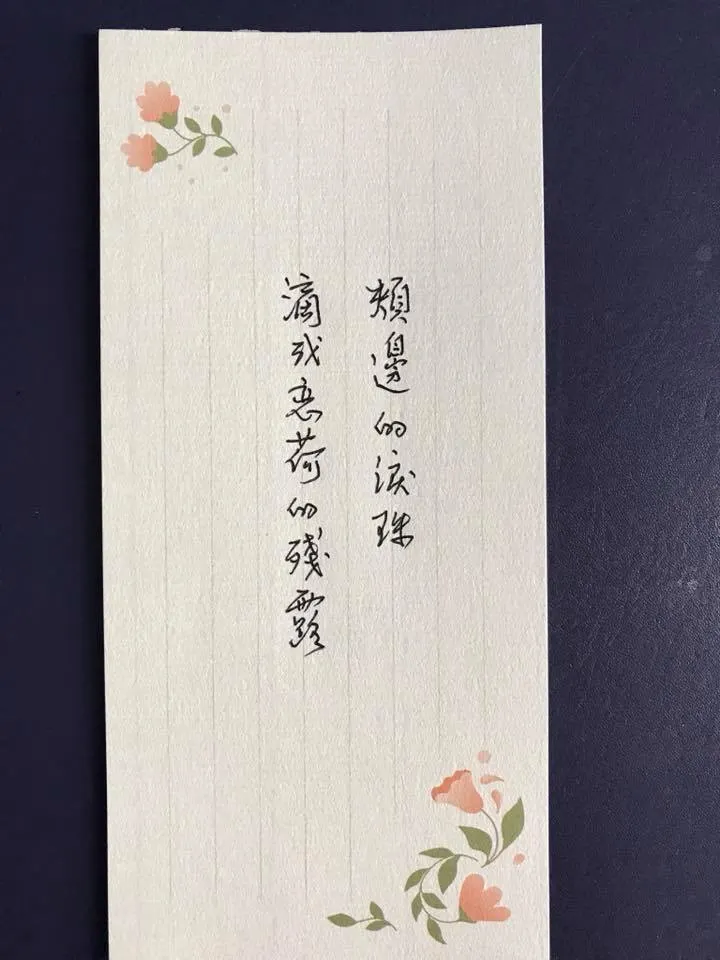 頰邊的淚珠
滴成戀荷的殘露